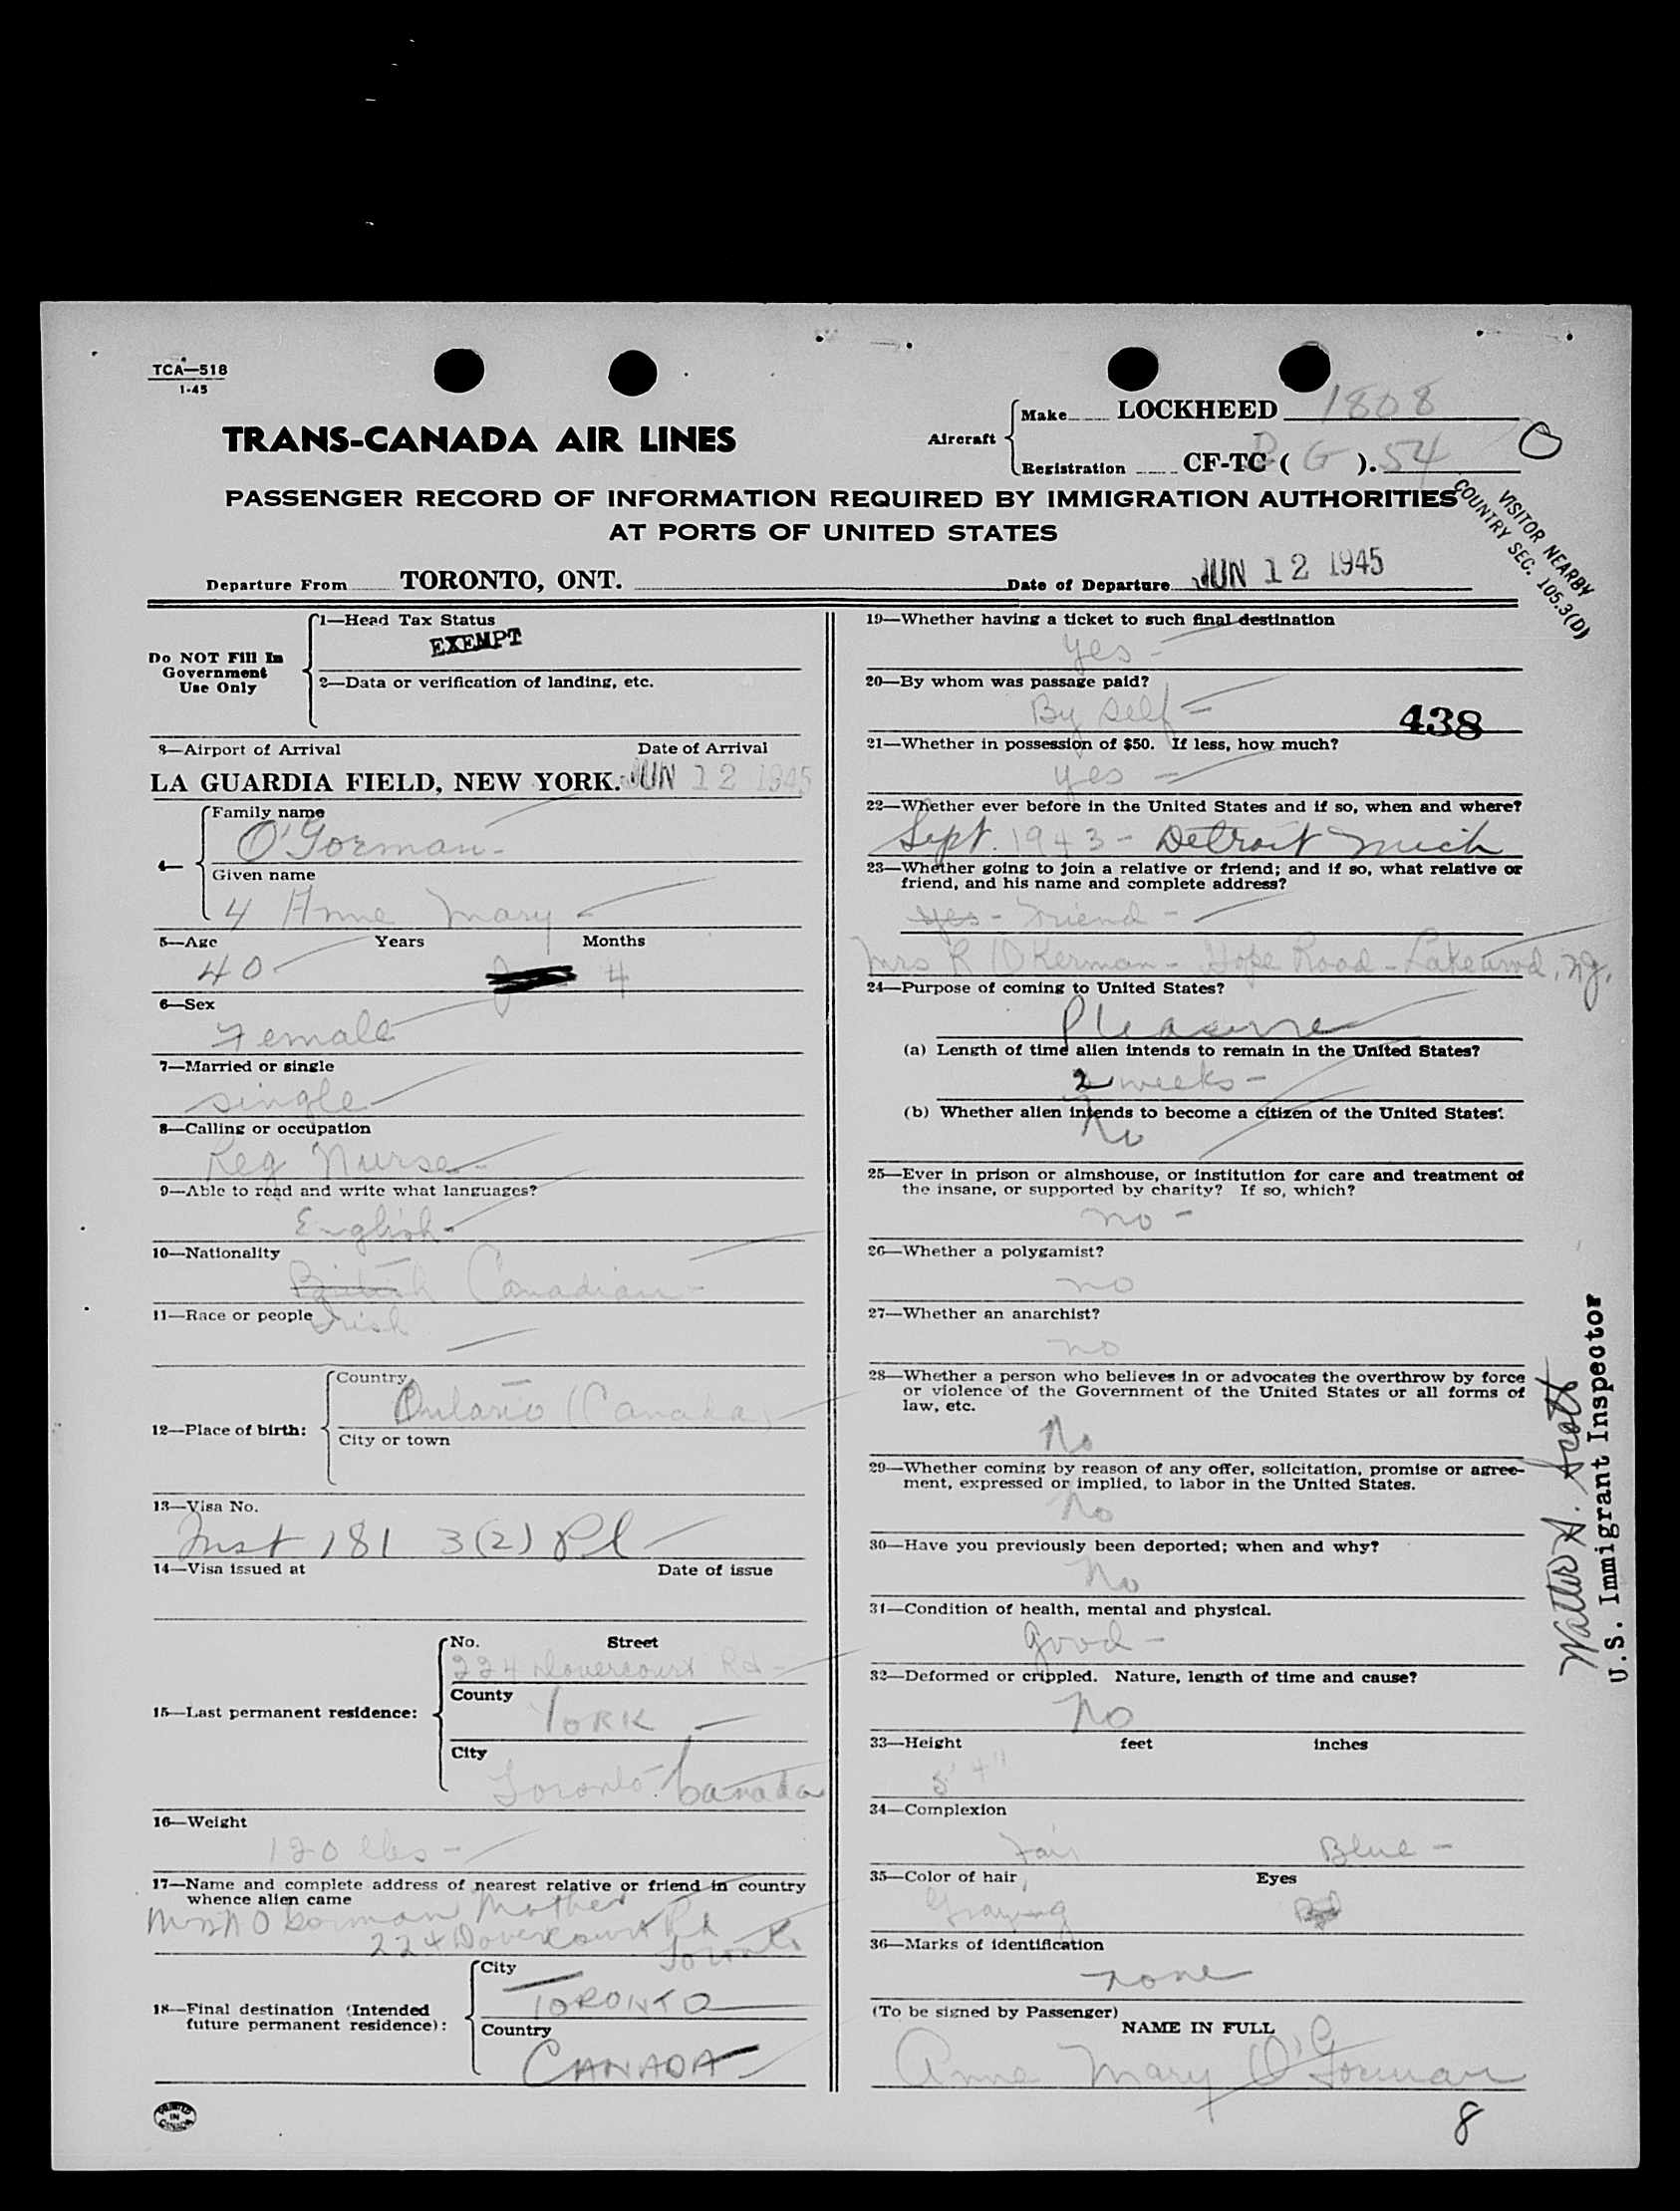 TCA—518
1-45
TRANS-CANADA AIR LINES
Aircraft
Make LOCKHEED 1808
Registration CF-TC ( G ). 54
PASSENGER RECORD OF INFORMATION REQUIRED BY IMMIGRATION AUTHORITIES
AT PORTS OF UNITED STATES
VISITOR NEARBY
COUNTRY SEC. 105.3(D)
Departure From TORONTO, ONT. Date of Departure JUN 12 1945
Do NOT Fill In
Government
Use Only
1—Head Tax Status
EXEMPT
2—Data or verification of landing, etc.
3—Airport of Arrival Date of Arrival
LA GUARDIA FIELD, NEW YORK. JUN 12 1945
4—
Family name
O'Gorman
Given name
4 Anne Mary
5—Age Years Months
40 4
6—Sex
Female
7—Married or single
single
8—Calling or occupation
Reg Nurse
9—Able to read and write what languages?
English
10—Nationality
British Canadian
11—Race or people
Irish
12—Place of birth:
Country
Ontario (Canada)
City or town
13—Visa No.
Inst 181 3(2) Pl
14—Visa issued at Date of issue
15—Last permanent residence:
No. Street
224 Dovercourt Rd
County
YORK
City
Toronto Canada
16—Weight
120 lbs
17—Name and complete address of nearest relative or friend in country
whence alien came
O'Gorman Mother
224 Dovercourt Rd
Toronto
18—Final destination (Intended
future permanent residence):
City
TORONTO
Country
CANADA
PRINTED
IN
CANADA
19—Whether having a ticket to such final destination
yes
20—By whom was passage paid?
By self
438
21—Whether in possession of $50. If less, how much?
yes
22—Whether ever before in the United States and if so, when and where?
Sept. 1943 - Detroit Mich
23—Whether going to join a relative or friend; and if so, what relative or
friend, and his name and complete address?
yes - Friend -
Mrs R Hope Road - Lakewood, N.J.
24—Purpose of coming to United States?
Pleasure
(a) Length of time alien intends to remain in the United States?
2 weeks -
(b) Whether alien intends to become a citizen of the United States?
No
25—Ever in prison or almshouse, or institution for care and treatment of
the insane, or supported by charity? If so, which?
no -
26—Whether a polygamist?
no
27—Whether an anarchist?
no
28—Whether a person who believes in or advocates the overthrow by force
or violence of the Government of the United States or all forms of
law, etc.
No
29—Whether coming by reason of any offer, solicitation, promise or agree-
ment, expressed or implied, to labor in the United States.
No
30—Have you previously been deported; when and why?
No
31—Condition of health, mental and physical.
good -
32—Deformed or crippled. Nature, length of time and cause?
No
33—Height feet inches
5' 4"
34—Complexion
Fair Blue -
35—Color of hair Eyes
Graying
36—Marks of identification
none
(To be signed by Passenger)
NAME IN FULL
Anne Mary O'Gorman
8
Walter A. Scott
U.S. Immigrant Inspector